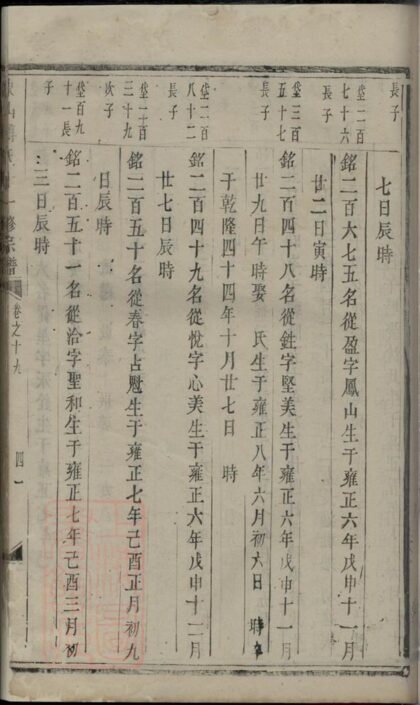 長子
七日辰時
二百
七十六
長子
銘二百六七五名從盈字鳳山生于雍正六年戊申十一月
廿二日寅時
三百
五十七
長子
銘二百四十八名從鉎字堅美生于雍正六年戊申十一月
廿九日午時娶 氏生于雍正八年六月初六日 時
于乾隆四十四年十月廿七日 時
二百
八十二
長子
銘二百四十九名從悅字心美生于雍正六年戊申十二月
廿七日辰時
二百
三十九
次子
銘二百五十名從春字占魁生于雍正七年己酉正月初九
日辰時
百九
十一長
子
銘二百五十一名從洽字聖和生于雍正七年己酉三月初
三日辰時
修宗譜 卷之十九 四一